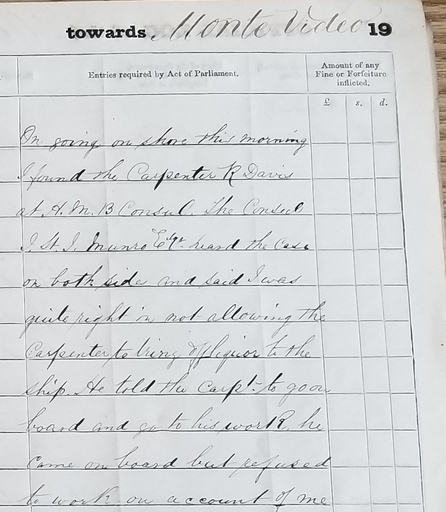 towards Monte Video 19
Entries required by Act of Parliament.
Amount of any
Fine or Forfeiture
inflicted.
£ s. d.
On going on shore this morning
I found the Carpenter R Davis
at H. M. B Consul. The Consul
J. St. J. Munro Esqr heard the Case
on both sides and said I was
quite right in not allowing the
Carpenter to bring off liquor to the
ship. He told the Carpt. to go on
board and go to his work, he
Came on board but refused
to work on account of me